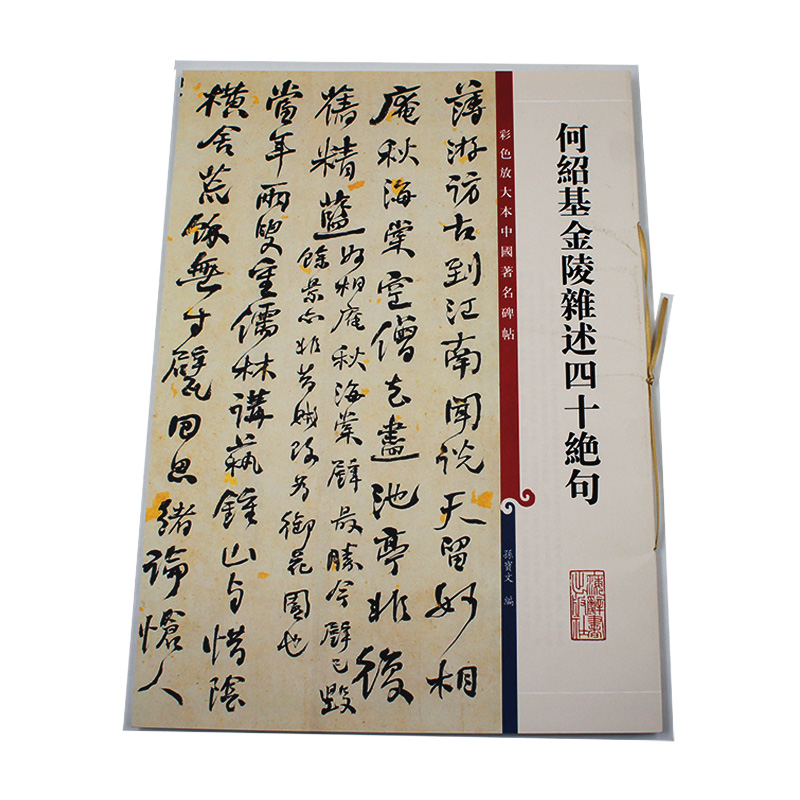 何紹基金陵雜述四十絶句
彩色放大本中國著名碑帖
孫寶文 編
上海辭書
出版社
薄游訪古到江南聞說天留妙相
庵秋海棠空僧去盡池亭非復
舊精藍
妙相庵秋海棠壁最勝今壁已毀
餘景亦非昔賊改为御花園也
當年兩叟重儒林講蓺鍾山与惜陰
橫舍荒餘無寸甓回思緒論愴人